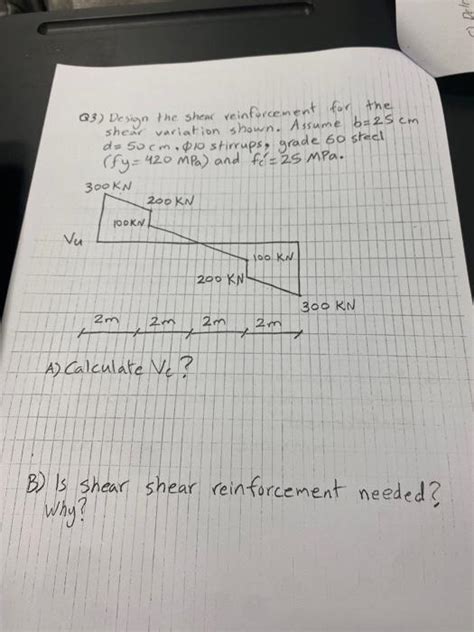 Q3) Design the shear reinforcement for the
shear variation shown. Assume b=25 cm
d= 50 cm. Φ10 stirrups, grade 60 steel
(fy= 420 MPa) and fc'= 25 MPa.
300 KN
200 KN
100KN
Vu
100 KN
200 KN
300 KN
2m 2m 2m 2m
A) Calculate Vc?
B) Is shear shear reinforcement needed?
Why?